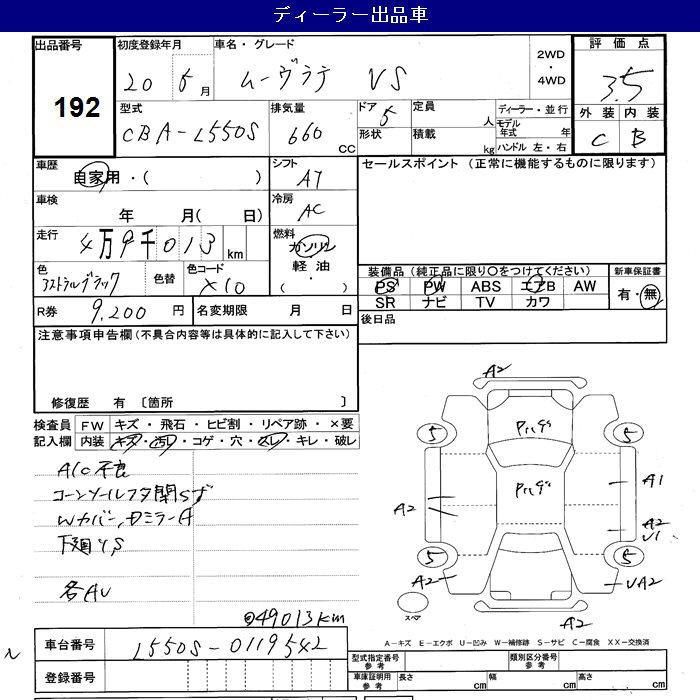 ディーラー出品車
出品番号 192
初度登録年月 20 5月
車名・グレード ムーヴラテ VS
2WD・4WD
評価点 3.5
外装 内装
C B
型式 CBA-L550S
排気量 660 CC
ドア 5
形状
定員 人
積載 kg
ディーラー・並行
モデル年式 年
ハンドル 左・右
車歴 自家用・( )
シフト AT
セールスポイント (正常に機能するものに限ります)
車検 年 月( 日)
冷房 AC
走行 4万9千013km
燃料 ガソリン
軽油・
( )
色 アストラルブラック
色替
色コード X10
装備品 (純正品に限り○をつけてください)
新車保証書
PS PW ABS エアB AW
有・無
SR ナビ TV カワ
R券 9,200円
名変期限 月 日
後日品
注意事項申告欄(不具合内容等は具体的に記入して下さい)
修復歴 有 〔箇所 〕
検査員 FW キズ・飛石・ヒビ割・リペア跡・×要
記入欄 内装 キズ・汚レ・コゲ・穴・スレ・キレ・破レ
A/C不良
コーンソールフタ閉らず
Wカバー,
下廻りS
各AU
49013km
A2
5
5
A2
A1
A2
U1
5
5
A2
UA2
スペア
A2
A-キズ E-エクボ U-凹み W-補修跡 S-サビ C-腐食 XX-交換済
車台番号 L550S-0119542
登録番号
型式指定番号 参考
類別区分番号 参考
車庫証明用 参考
長さ cm
幅 cm
高さ cm